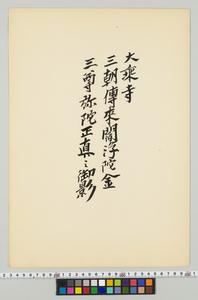 大乗寺
三朝傳来閻浮陀金
三尊弥陀正真之御影